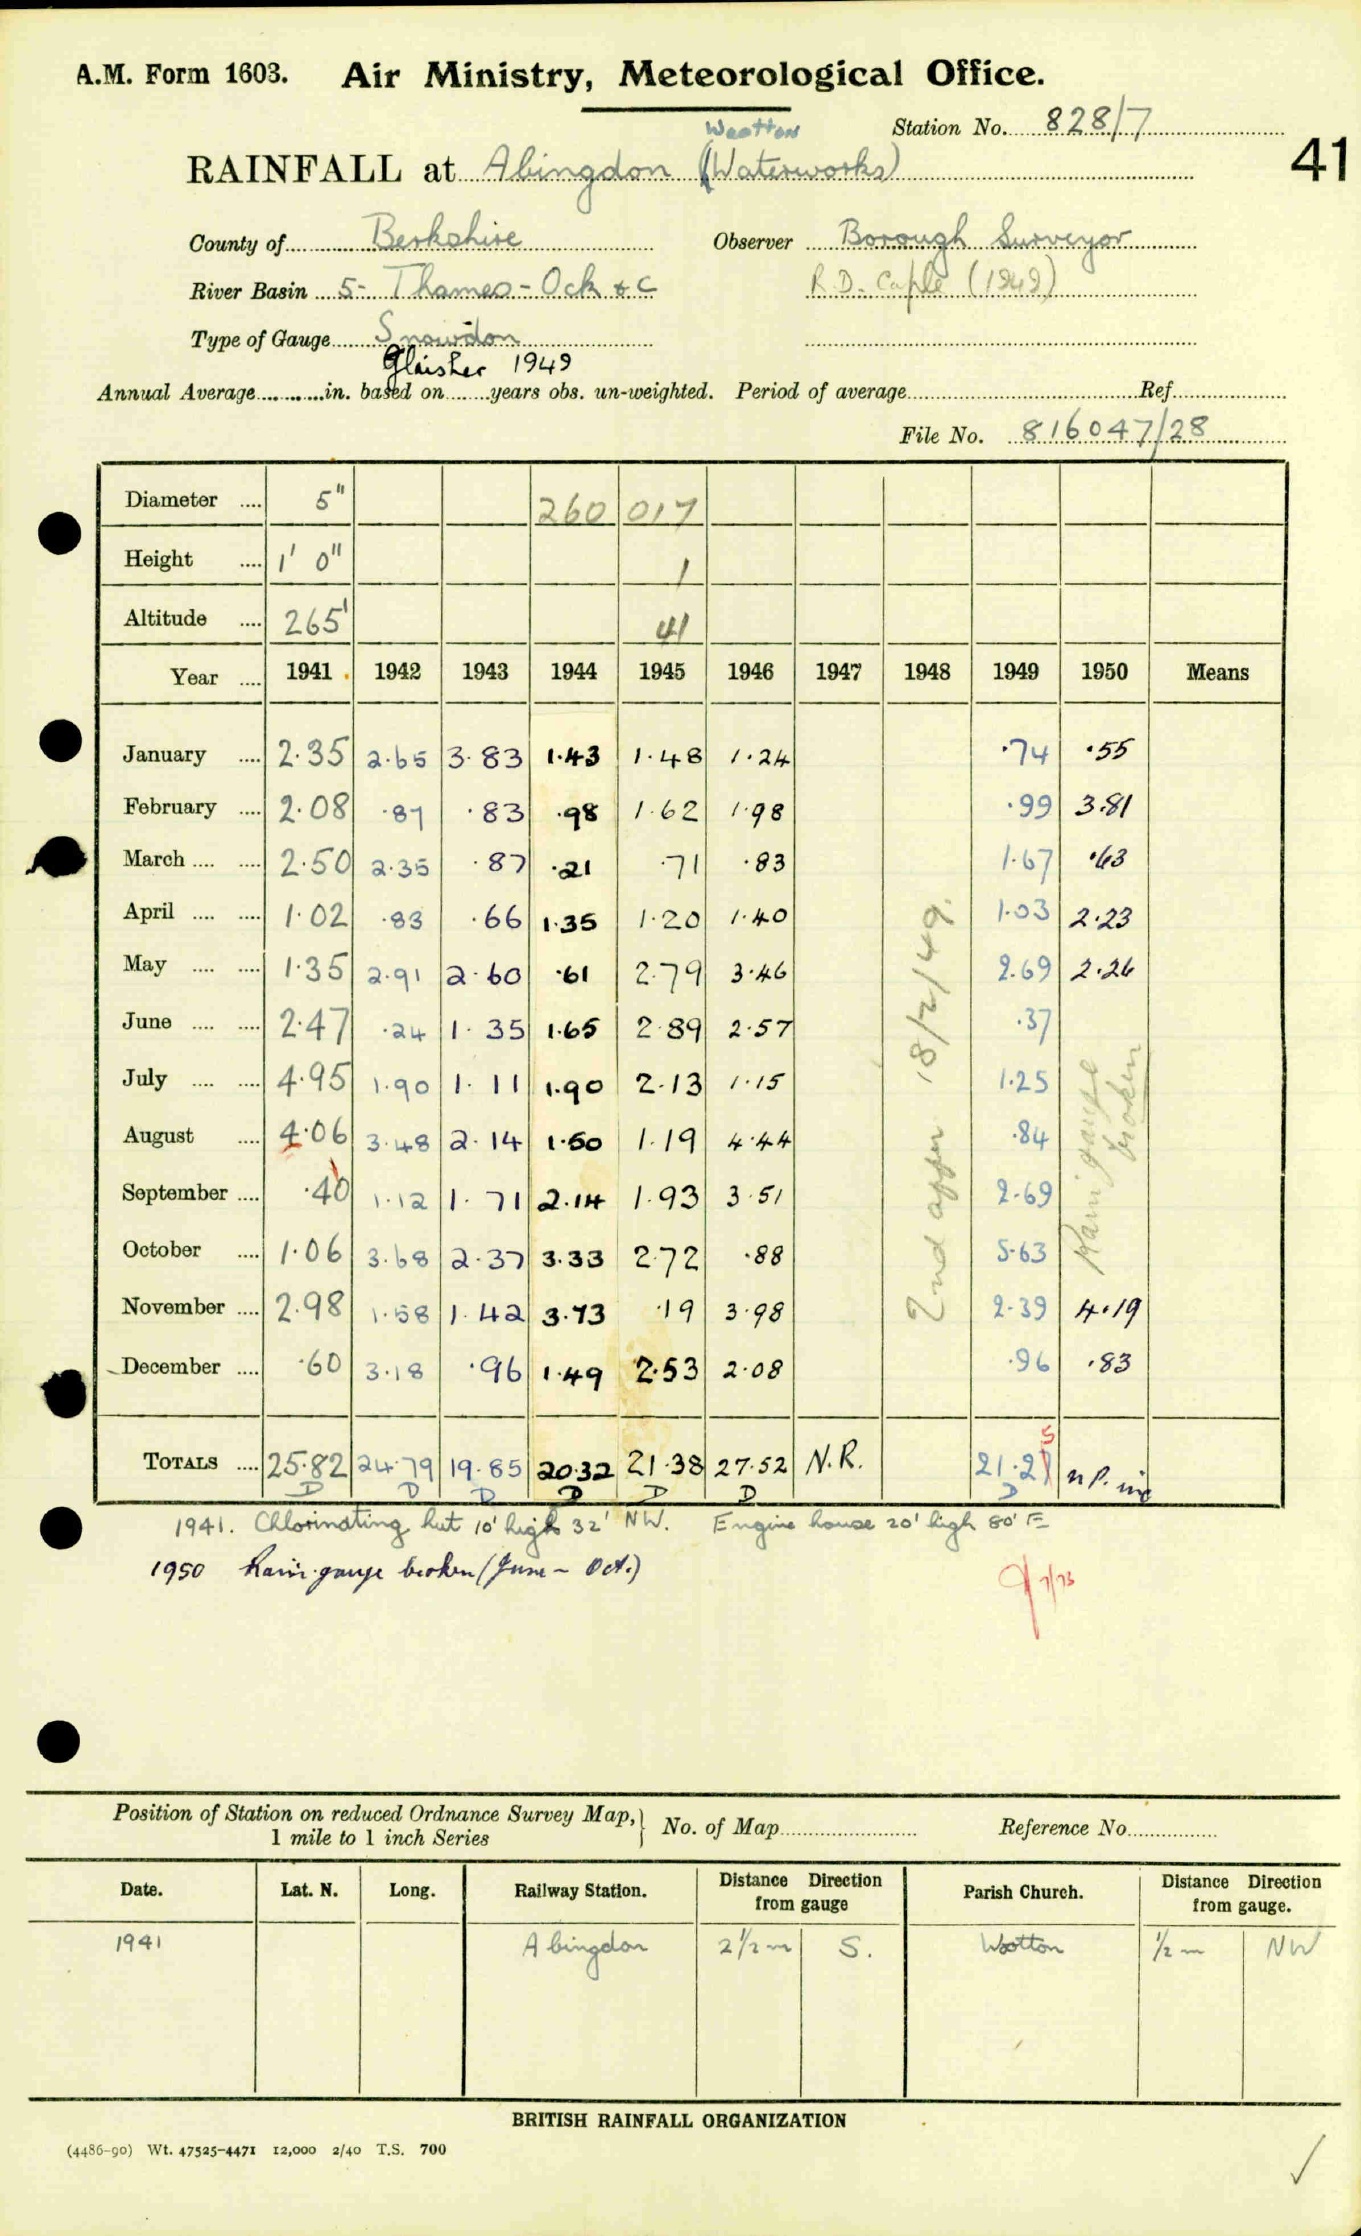 A.M. Form 1603. Air Ministry, Meteorological Office.
Station No. 828/7
41
Wootton
RAINFALL at Abingdon (Waterworks)
County of Berkshire Observer Borough Surveyor
River Basin 5- Thames - Ock &c R.D. Caple (1949)
Type of Gauge Snowdon
Glaisher 1949
Annual Average in. based on years obs. un-weighted. Period of average Ref
File No. 816047/28
Diameter 5" 260 017
Height 1' 0" 1
Altitude 265' 41
Year 1941 1942 1943 1944 1945 1946 1947 1948 1949 1950 Means
January 2.35 2.65 3.83 1.43 1.48 1.24 .74 .55
February 2.08 .87 .83 .98 1.62 1.98 .99 3.81
March 2.50 2.35 .87 .21 .71 .83 1.67 .63
April 1.02 .83 .66 1.35 1.20 1.40 1.03 2.23
May 1.35 2.91 2.60 .61 2.79 3.46 2.69 2.26
June 2.47 .24 1.35 1.65 2.89 2.57 .37
July 4.95 1.90 1.11 1.90 2.13 1.15 1.25
August 4.06 3.48 2.14 1.50 1.19 4.44 .84
September .40 1.12 1.71 2.14 1.93 3.51 2.69
October 1.06 3.68 2.37 3.33 2.72 .88 5.63
November 2.98 1.58 1.42 3.73 .19 3.98 2.39 4.19
December .60 3.18 .96 1.49 2.53 2.08 .96 .83
2nd appn 18/2/49.
Rain gauge
broken
5
TOTALS 25.82 24.79 19.85 20.32 21.38 27.52 N.R. 21.21 n.P. inc
D D D D D D D
1941. Chlorinating hut 10' high 32' NW. Engine house 20' high 80' E
1950 Rain gauge broken (June - Oct.)
7/73
Position of Station on reduced Ordnance Survey Map,
1 mile to 1 inch Series
No. of Map Reference No.
Date. Lat. N. Long. Railway Station. Distance from gauge Direction Parish Church. Distance from gauge. Direction
1941 Abingdon 2½ m S. Wootton ½ m NW
BRITISH RAINFALL ORGANIZATION
(4486-90) Wt. 47525-4471 12,000 2/40 T.S. 700